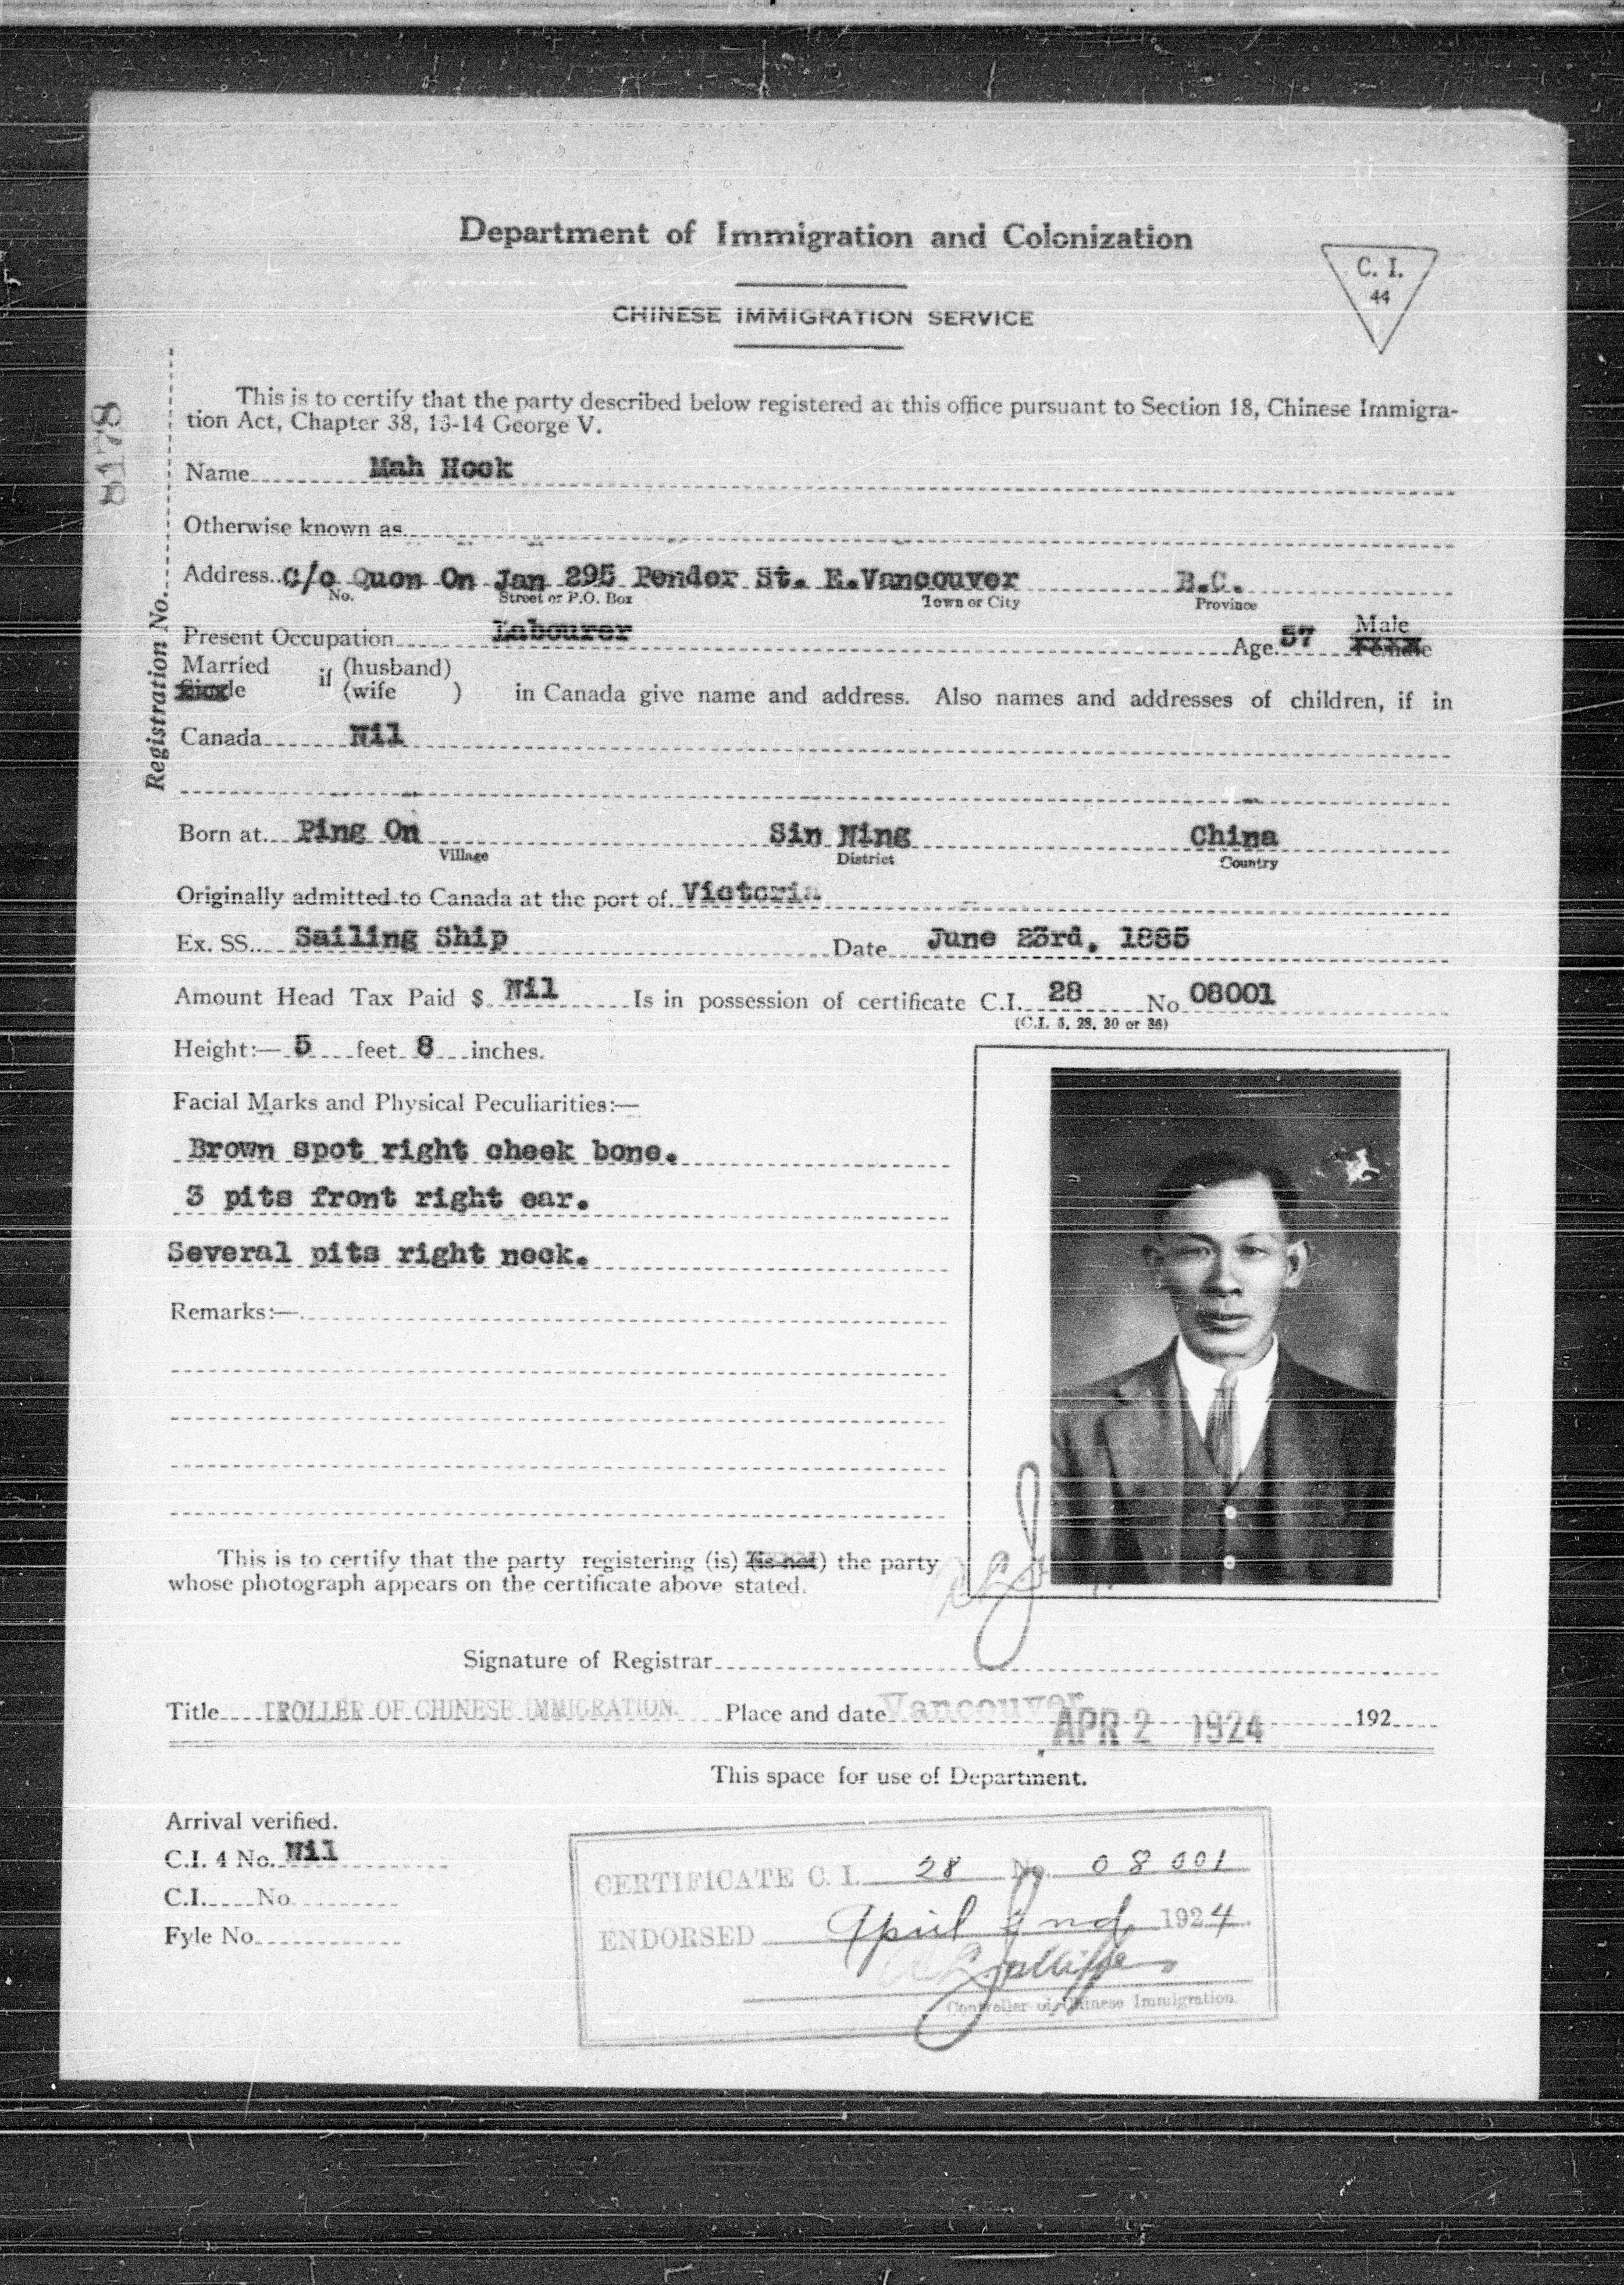 Department of Immigration and Colonization
CHINESE IMMIGRATION SERVICE
C. I.
44
8178
Registration No.
This is to certify that the party described below registered at this office pursuant to Section 18, Chinese Immigra-
tion Act, Chapter 38, 13-14 George V.
Name Mah Hook
Otherwise known as
Address C/o Quon On Jan 295 Pender St. E. Vancouver B.C.
No. Street or P.O. Box Town or City Province
Present Occupation Labourer Age 57 Male
Female
Married if (husband)
Single (wife ) in Canada give name and address. Also names and addresses of children, if in
Canada Nil
Born at Ping On Sin Ning China
Village District Country
Originally admitted to Canada at the port of Victoria
Ex. SS. Sailing Ship Date June 23rd, 1885
Amount Head Tax Paid $ Nil Is in possession of certificate C.I. 28 No 08001
(C.I. 5, 28, 30 or 36)
Height:— 5 feet 8 inches.
Facial Marks and Physical Peculiarities:—
Brown spot right cheek bone.
3 pits front right ear.
Several pits right neck.
Remarks:—
This is to certify that the party registering (is) (is not) the party
whose photograph appears on the certificate above stated.
Signature of Registrar
Title TROLLER OF CHINESE IMMIGRATION. Place and date Vancouver APR 2 1924 192
This space for use of Department.
Arrival verified.
C.I. 4 No. Nil
C.I. No
Fyle No.
CERTIFICATE C. I. 28 No. 08001
ENDORSED April 2nd, 1924.
Controller of Chinese Immigration.